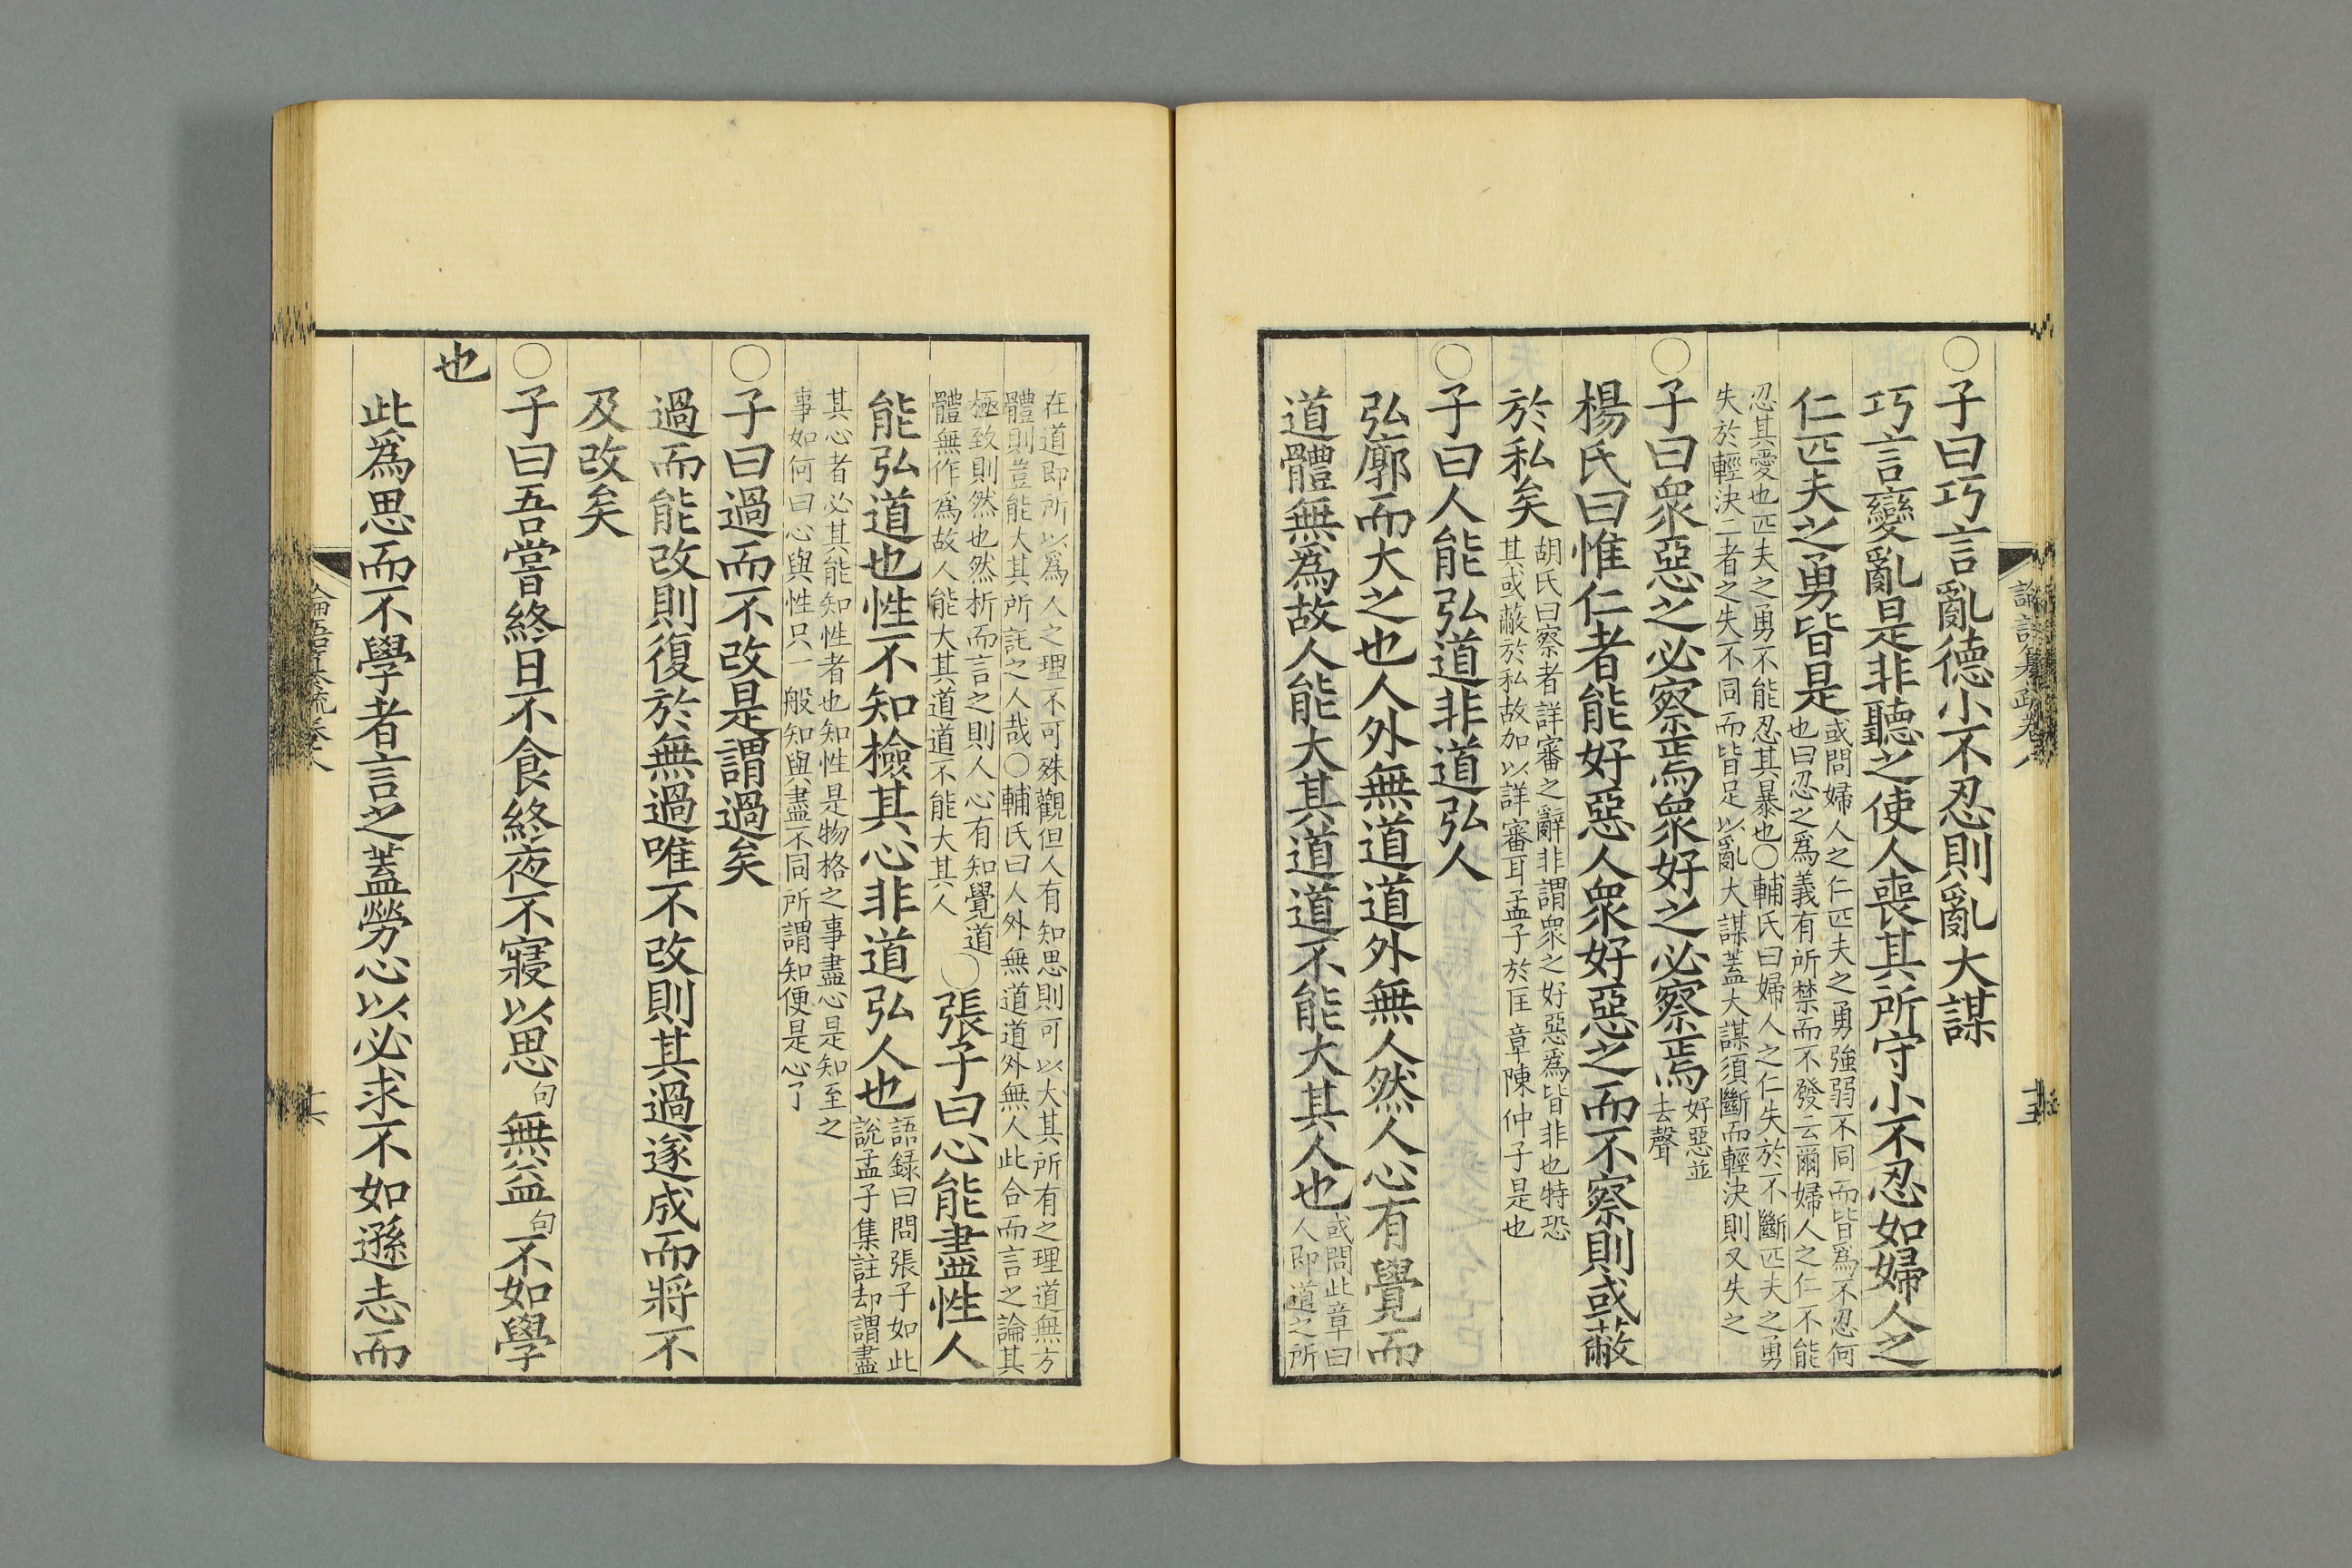 論語纂疏卷八
十五
○子曰巧言亂德小不忍則亂大謀
巧言變亂是非聽之使人喪其所守小不忍如婦人之
仁匹夫之勇皆是
或問婦人之仁匹夫之勇強弱不同而皆爲不忍何
也曰忍之爲義有所禁而不發云爾婦人之仁不能
忍其愛也匹夫之勇不能忍其暴也○輔氏曰婦人之仁失於不斷匹夫之勇
失於輕決二者之失不同而皆足以亂大謀蓋大謀須斷而輕決則又失之
○子曰衆惡之必察焉衆好之必察焉
好惡並
去聲
楊氏曰惟仁者能好惡人衆好惡之而不察則或蔽
於私矣
胡氏曰察者詳審之辭非謂衆之好惡爲皆非也特恐
其或蔽於私故加以詳審耳孟子於匡章陳仲子是也
○子曰人能弘道非道弘人
弘廓而大之也人外無道道外無人然人心有覺而
道體無爲故人能大其道道不能大其人也
或問此章曰
人即道之所
在道即所以爲人之理不可殊觀但人有知思則可以大其所有之理道無方
體則豈能大其所託之人哉○輔氏曰人外無道道外無人此合而言之論其
極致則然也然析而言之則人心有知覺道
體無作爲故人能大其道道不能大其人
○張子曰心能盡性人
能弘道也性不知檢其心非道弘人也
語録曰問張子如此
說孟子集註却謂盡
其心者必其能知性者也知性是物格之事盡心是知至之
事如何曰心與性只一般知與盡不同所謂知便是心了
○子曰過而不改是謂過矣
過而能改則復於無過唯不改則其過遂成而將不
及改矣
○子曰吾嘗終日不食終夜不寢以思句無益句不如學
也
此爲思而不學者言之蓋勞心以必求不如遜志而
論語纂疏卷八
十六